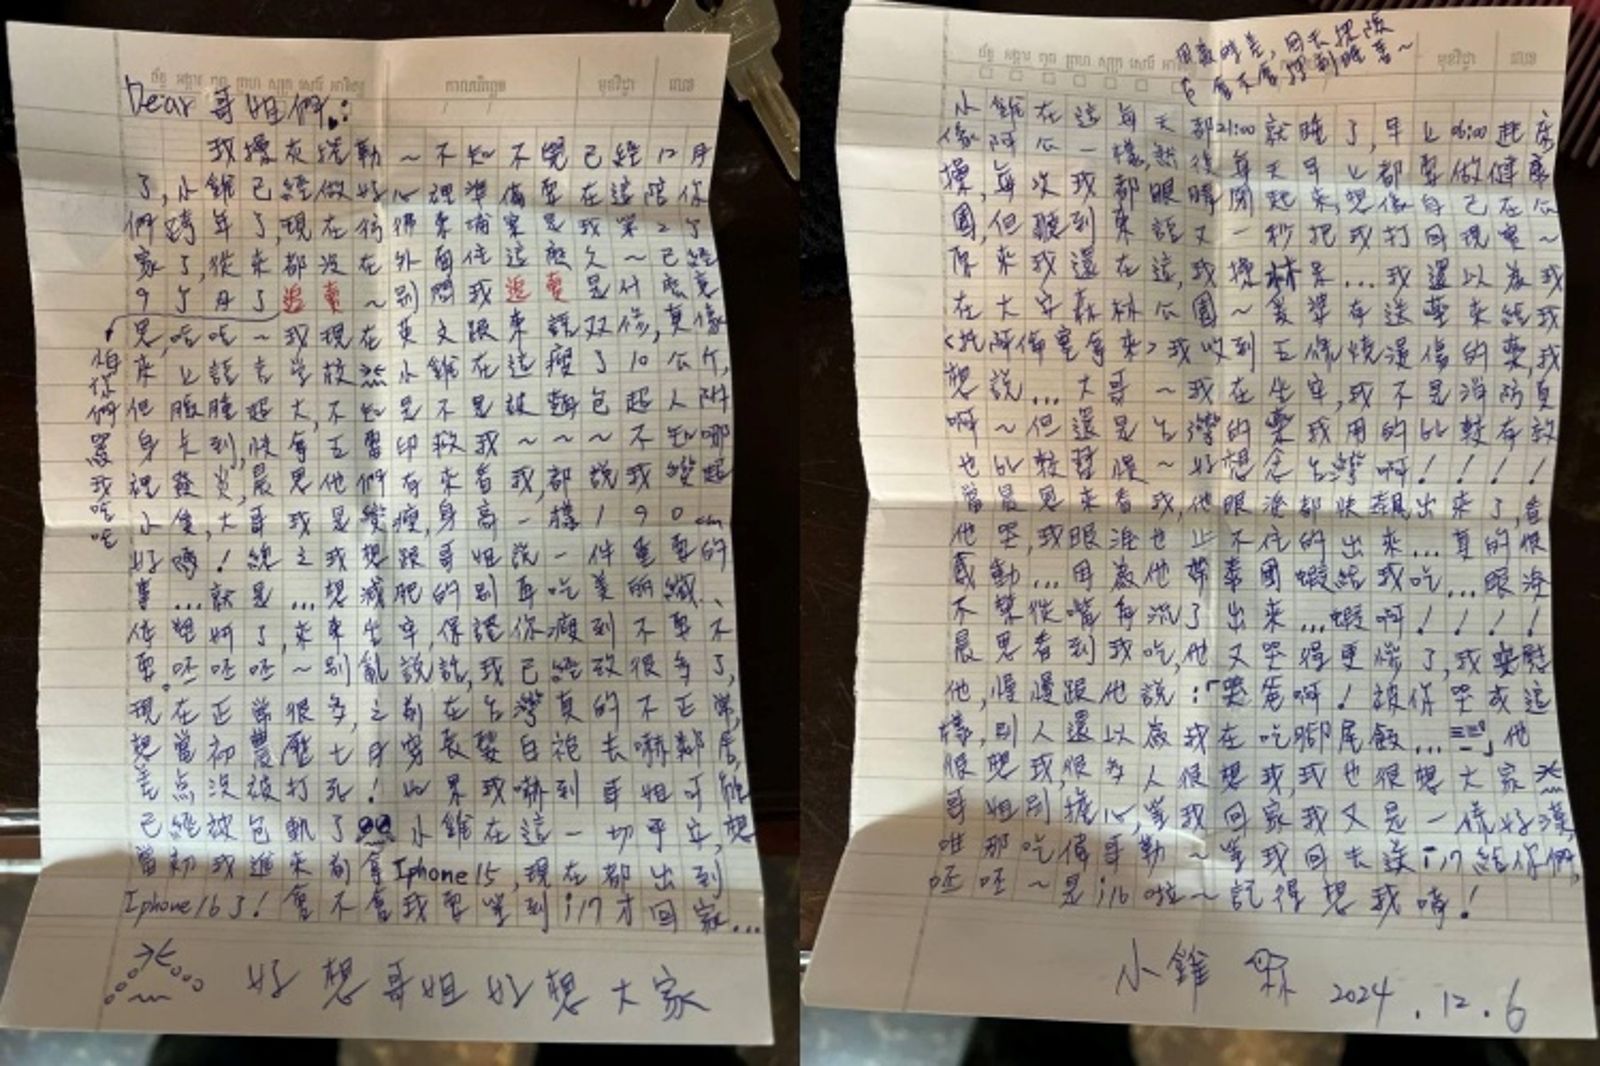 Dear 哥姐們:
我擦灰捲勒～不知不覺已經12月
了,小錐已經做好心裡準備要在這陪你
們跨年了,現在彷彿柬埔寨是我第2個
家了,從來都沒在外面住這麼久～已經
9個月了追賣～別問我追賣是什麼意
思,吃吃～我現在英文跟柬話双修,真像
床上語言學校 小錐在這瘦了10公斤,
但腹腫超大,不知是不是被麵包超人附
身卡到,快拿五雷印救我～～～不知哪
裡發炎,晨思他們有來看我,都說我變超
小隻,大哥我是變瘦,身高一樣190cm
好嗎!總之我想跟哥姐說一件重要的
事...就是...想減肥的別再吃美的纖、
依 了,來柬坐牢,保證你瘦到不要不
要。呸呸呸～別亂說話,我已經改很多了,
現在正常很多,之前在台灣真的不正常,
想當初農歷七月穿長髮白袍去嚇鄰居,
差点沒被打死!如果我嚇到哥姐可能
已經被包軌了 小錐在這一切平安,想
當初我進來剛拿Iphone15,現在都出到
Iphone16了!會不會我要等到i17才回家...
怕你們罵我吃吃
好想哥姐好想大家
因為時差,回去把
會不會
小錐在這每天都21:00就睡了,早上06:00起床
像阿公一樣,然後每天早上都要做健康
操,每次我都眼睛閉起來,想像自己在公
園,但聽到柬話又一秒把我打回現實～
原來我還在這,我操林 ...我還以為我
在大安森林公園～ 有送藥來給我
<托阿偉 拿來>我收到五條燒燙傷的藥,我
想說...大哥～我在坐牢,我不是消防員
啊～但還是台灣的藥我用的比較有效
也比較習慣～好想念台灣啊!!!!
當晨思來看我,他眼淚都快飆出來了,看
他哭,我眼淚也止不住的出來...真的很
感動...因為他帶泰國蝦給我吃...眼淚
不禁從嘴角流了出來...蝦啊!!!!
晨思看到我吃,他又哭得更慘了,我安慰
他,慢慢跟他說:「哭爸啊!被你哭成這
樣,別人還以為我在吃腳尾飯...」他
很想我,很多人很想我,我也很想大家
哥姐別擔心,等我回家我又是一條好漢,
唯那吃偉哥勒～等我回去送i17給你們,
呸呸～是i16啦～記得想我唷!
小錐 2024.12.6